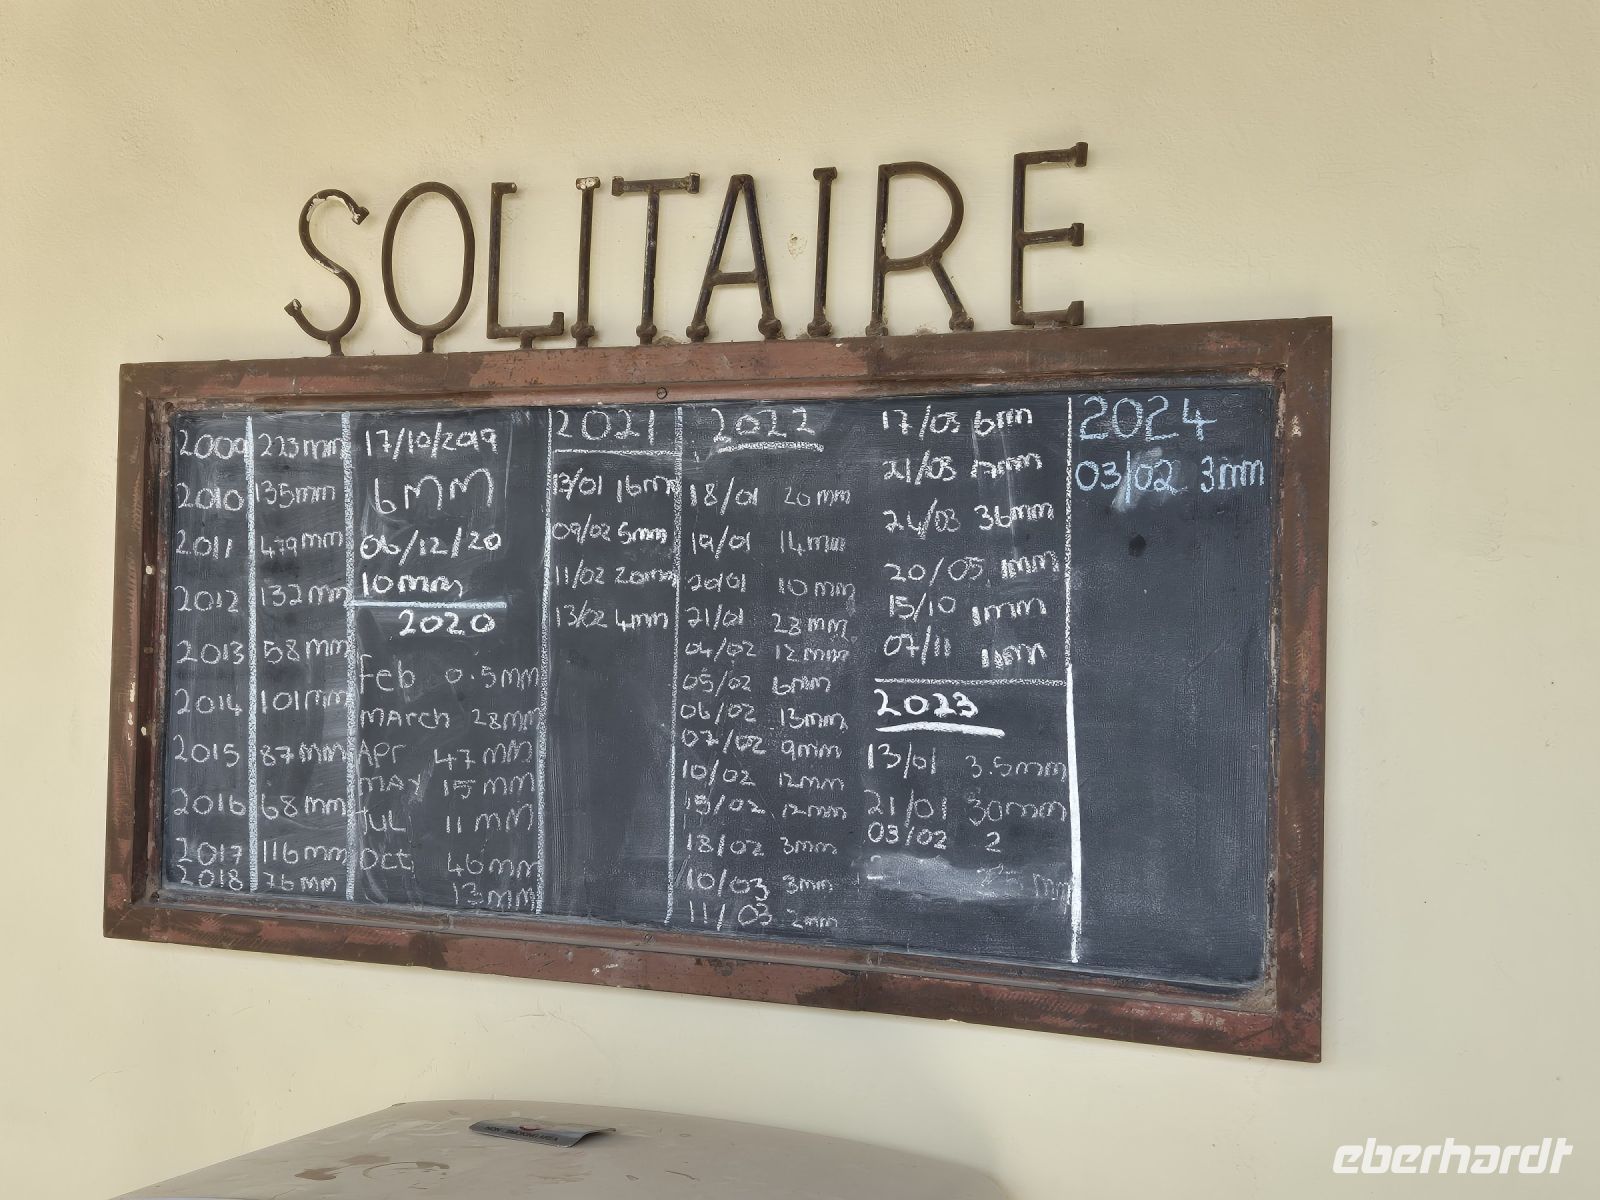 SOLITAIRE
2009 223mm
2010 135mm
2011 479mm
2012 132mm
2013 58mm
2014 101mm
2015 87mm
2016 68mm
2017 116mm
2018 76mm
17/10/2019
6mm
06/12/20
10mm
2020
Feb 0.5mm
MArch 28mm
Apr 47mm
MAY 15mm
JUL 11mm
Oct 46mm
13mm
2021
13/01 16mm
09/02 5mm
11/02 20mm
13/02 4mm
2022
18/01 20mm
19/01 14mm
20/01 10mm
21/01 23mm
04/02 12mm
05/02 6mm
06/02 13mm
07/02 9mm
10/02 12mm
15/02 12mm
18/02 3mm
10/03 3mm
11/03 2mm
17/03 6mm
21/03 17mm
24/03 36mm
20/05 1mm
15/10 1mm
07/11 11mm
2023
13/01 3.5mm
21/01 30mm
03/02 2
2024
03/02 3mm
eberhardt